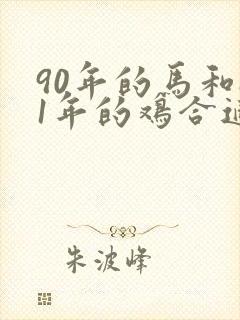 90年的馬和
1年的鸡合适
朱波峰